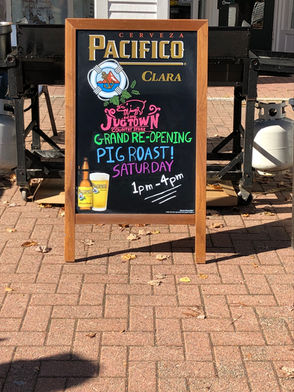 CERVEZA
PACIFICO
CLARA
JUGTOWN
COUNTRY STORE
GRAND RE-OPENING
PIG ROAST!
SATURDAY
1pm-4pm